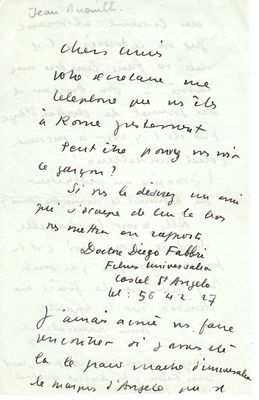 Jean Anouilh.
chers amis
votre secretaire me
telephone que vs êtes
à Rome justement
Peut être pouvez vs voir
le garçon ?
Si vs le desirez un ami
qui s'occupe de lui la bas
vs mettra en rapport
Doctore Diego Fabbri
Films universalia
Castel St Angelo
tel : 56 42 27
J'aimais aimé vs faire
rencontrer si j'avais été
la le
d'universalia
le marquis d'Angelo qui